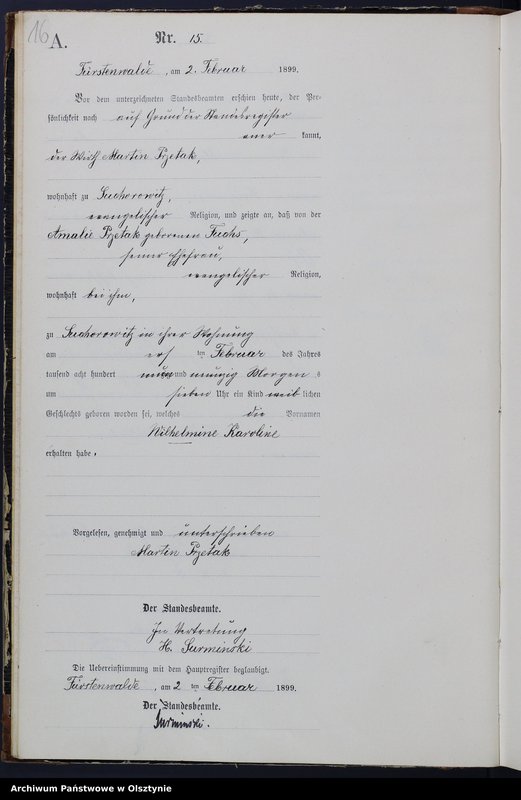 16
A.
Nr. 15.
Fürstenwalde, am 2. Februar 1899.
Vor dem unterzeichneten Standesbeamten erschien heute, der Per-
sönlichkeit nach auf Grund der Standesregister
aner kannt,
der Wirth Martin Przetak,
wohnhaft zu Suchorowitz,
evangelischer Religion, und zeigte an, daß von der
Amalie Przetak geborenen Fuchs,
seiner Ehefrau,
evangelischer Religion,
wohnhaft bei ihm,
zu Suchorowitz in ihrer Wohnung
am ersten Februar des Jahres
tausend acht hundert neun und neunzig Morgens
um sieben Uhr ein Kind weiblichen
Geschlechts geboren worden sei, welches die Vornamen
Wilhelmine Karoline
erhalten habe.
Vorgelesen, genehmigt und unterschrieben
Martin Przetak
Der Standesbeamte.
In Vertretung
H. Surminski
Die Uebereinstimmung mit dem Hauptregister beglaubigt.
Fürstenwalde, am 2 ten Februar 1899.
Der Standesbeamte.
Surminski.
Archiwum Państwowe w Olsztynie